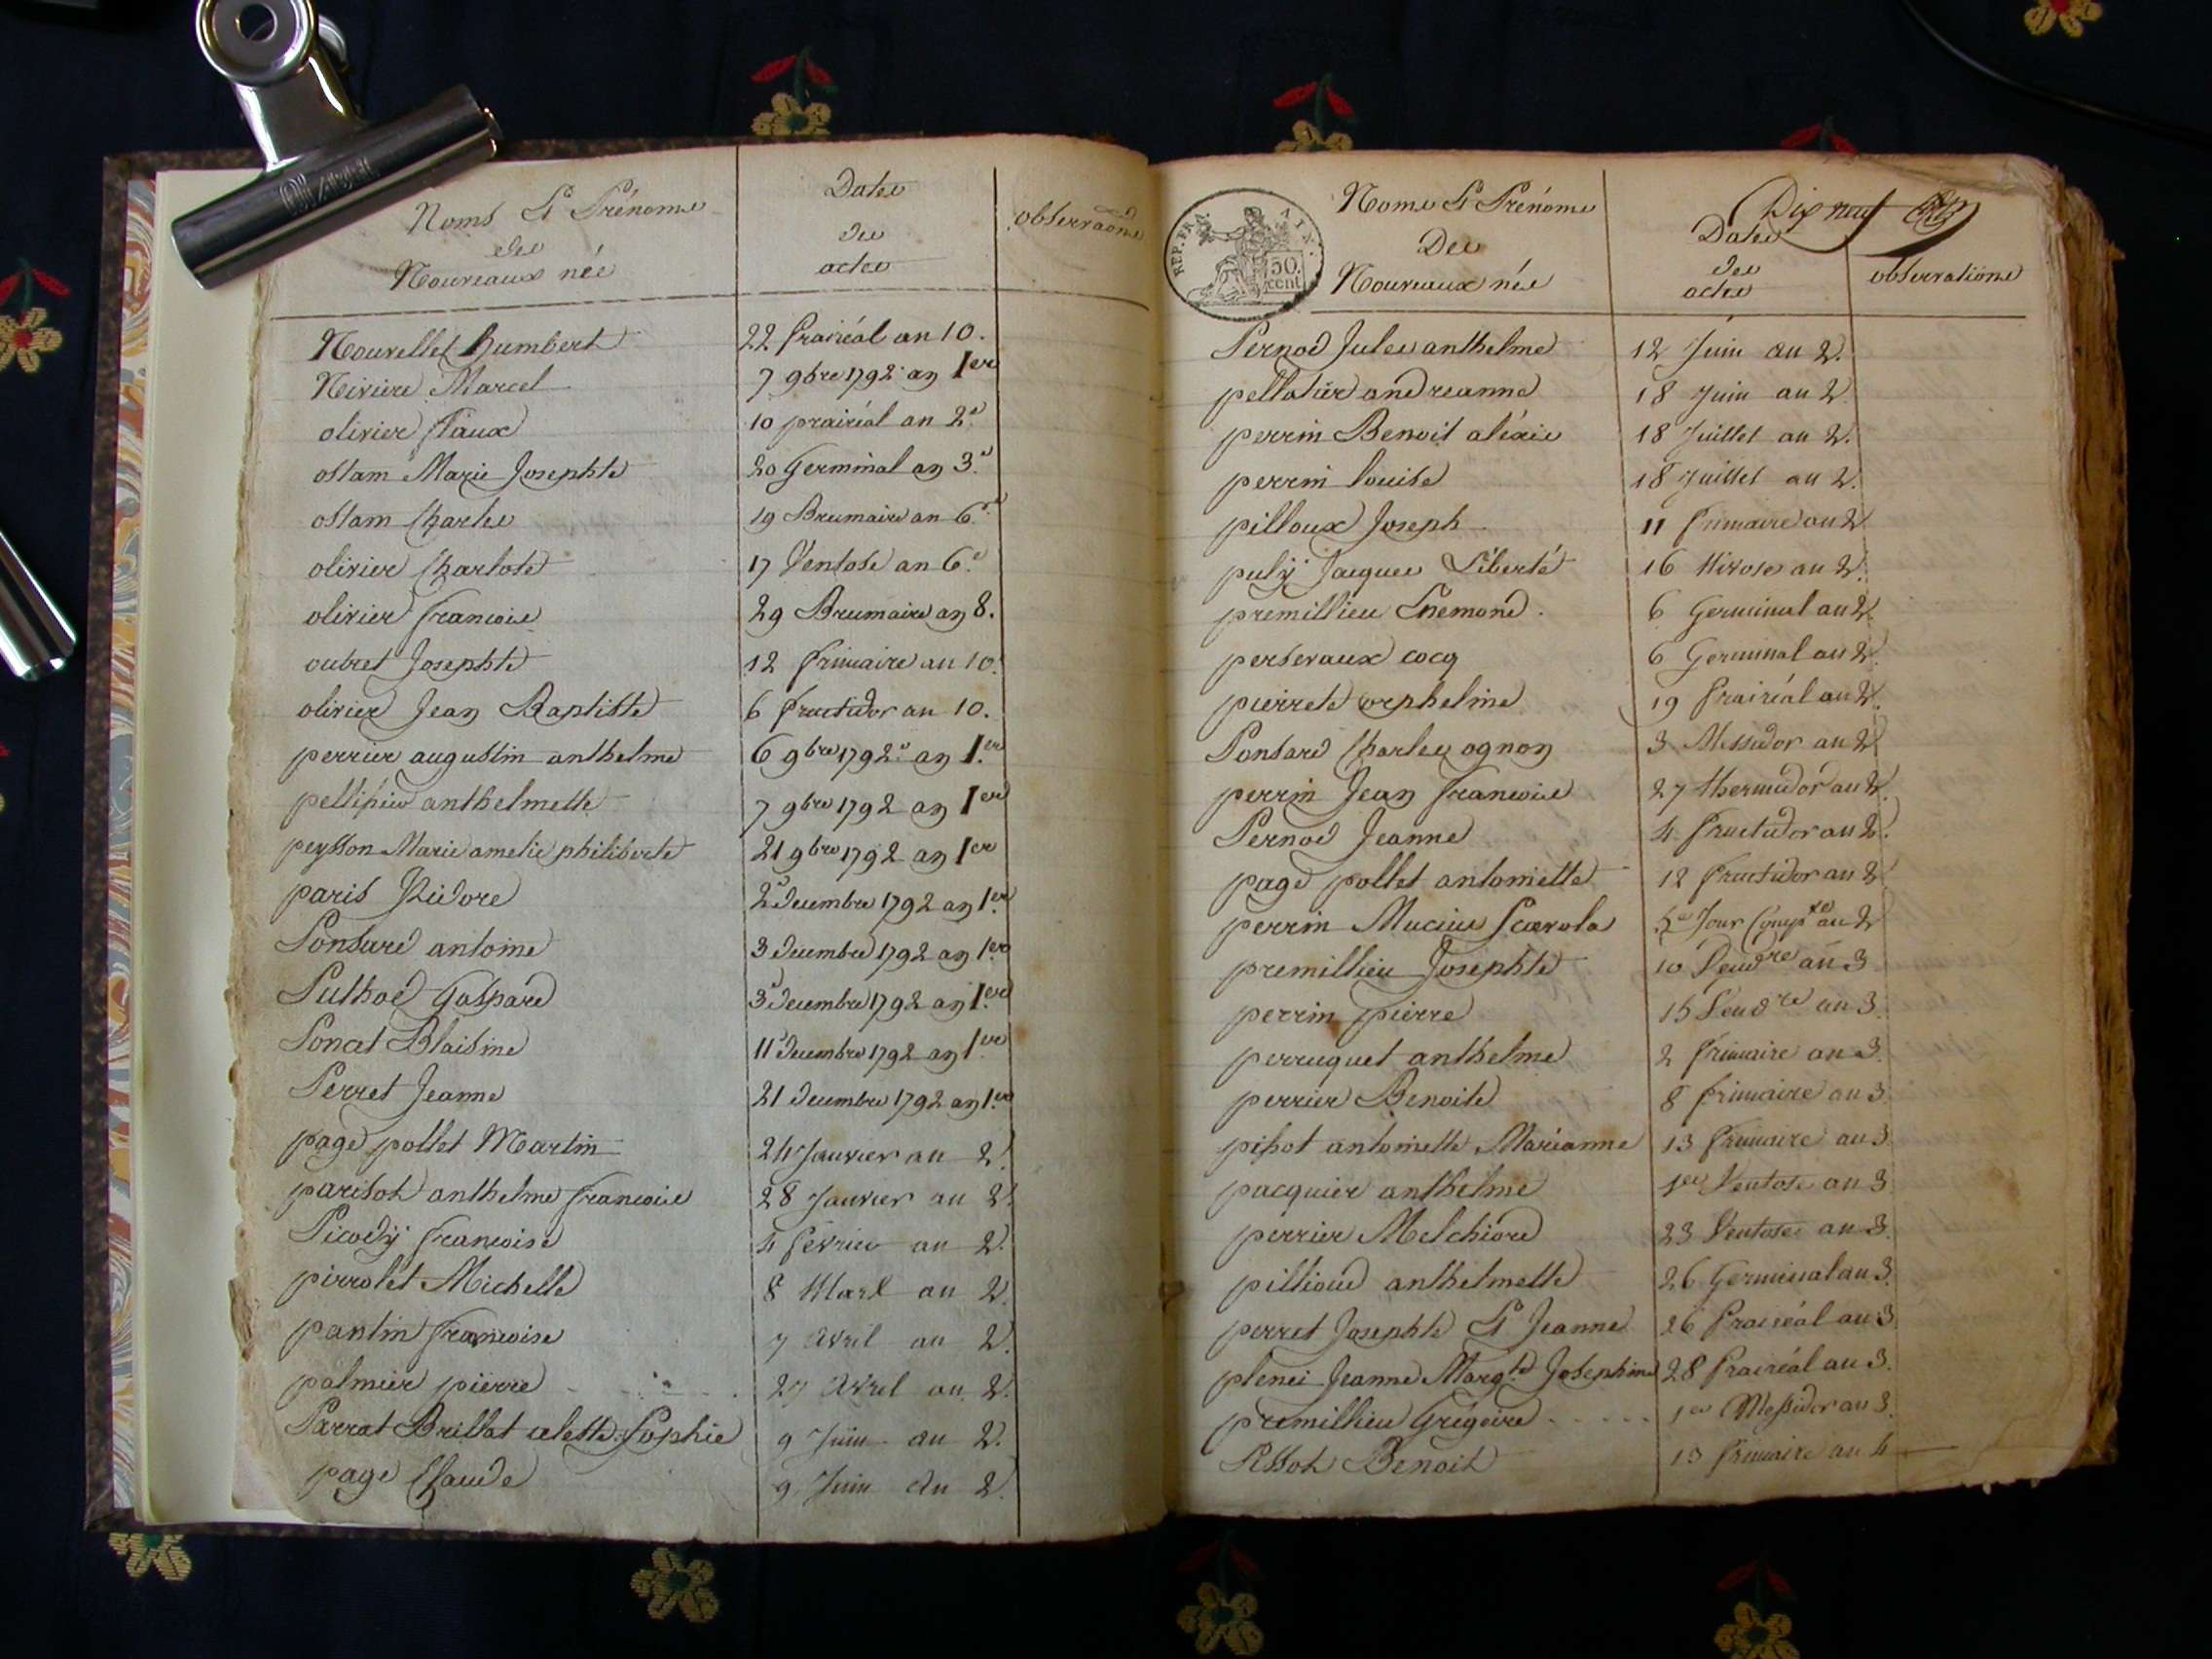 Noms Et Prénoms
des
Nouveaux nés
Dates
des
actes
observaons
Nouvellet humbert 22 prairéal an 10.
Niviere Marcel 7 9bre 1792 an 1er
olivier 10 prairéal an 2e
ostam Marie Josephte 20 Germinal an 3e
ostam Charles 19 Brumaire an 6e
olivier Charlote 17 Ventose an 6e
olivier francois 29 Brumaire an 8.
oubret Josephte 12 frimaire an 10.
olivier Jean Baptiste 6 fructidor an 10.
perrier augustin anthelme 6 9bre 1792 an 1er
anthelmette 7 9bre 1792 an 1er
peysson Marie amelie philiberte 21 9bre 1792 an 1er
paris Isidore 2 decembre 1792 an 1er
Ponsard antoine 3 decembre 1792 an 1er
Puthod Gaspard 3 decembre 1792 an 1er
Poncet Blaisine 11 decembre 1792 an 1er
Perret Jeanne 21 decembre 1792 an 1er
page pollet Martin 24 Janvier an 2.
parisot anthelme francois 28 Janvier an 2.
Picody francoise 4 fevrier an 2.
pirrolet Michelle 8 Mars an 2.
pantin francoise 7 avril an 2.
palmier pierre 27 Avril an 2.
Parrat Brillat celette Sophie 9 Juin an 2.
page Claude 9 Juin an 2.
REP. FRA. AIN.
50.
cent
Dix neuf
Noms Et Prénoms
Des
Nouveaux nés
Dates
des
actes
observations
Pernod Jules anthelme 12 Juin an 2.
pellatier andreanne 18 Juin an 2
perrin Benoit aléxis 18 Juillet an 2.
perrin louise 18 Juillet an 2.
pilloux Joseph 11 frimaire an 2
puly Jacques Liberté 16 Nivose an 2.
premillieu 6 Germinal an 2.
perseraux cocq 6 Germinal an 2.
pierrete orpheline 19 Prairéal an 2.
Ponsard Charles ognon 3 Messidor an 2
perrin Jean francois 27 thermidor an 2.
Pernod Jeanne 4 fructidor an 2.
page pollet antoniette 12 fructidor an 2.
perrin Mucius Scœvola 5e Jour Compre an 2
premillieu Josephte 10 Vendre an 3
perrin pierre 15 Vendre an 3.
perruquet anthelme 2 frimaire an 3.
perrier Benoite 8 frimaire an 3.
pissot antoinette Marianne 13 frimaire an 3
pacquier anthelme 1er Ventose an 3
perrier Melchiord 23 Ventose an 3.
pillioud anthelmette 26 Germinal an 3.
perret Josephte Et Jeanne 26 Prairéal an 3
plenei Jeanne Margte Josephine 28 Prairéal an 3.
premillieu Grégoire 1er Messidor an 3.
Pissot Benoit 13 frimaire an 4